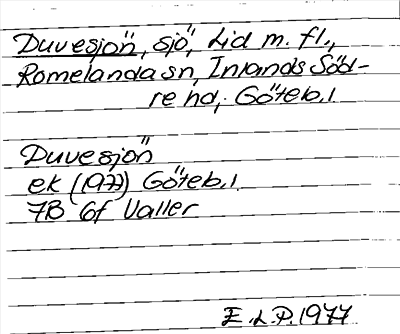 Duvesjön, sjö, Lid m. fl.,
Romelanda sn, Inlands Söd-
re hd, Göteb.l.
Duvesjön
ek (1977) Göteb.l.
7B 6f Valler
E.L.P. 1977